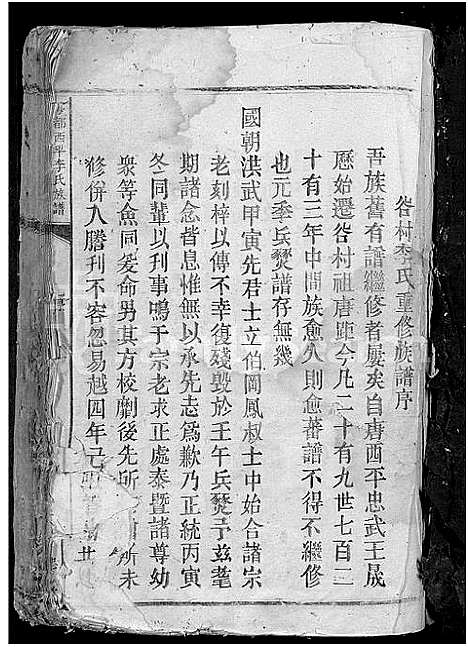 谷村李氏重修族譜序
吾族舊有譜繼修者屢矣自唐西平忠武王晟
歷始遷谷村祖唐距今凡二十有九世七百二
十有三年中間族愈久則愈蕃譜不得不繼修
也元季兵燹譜存無幾
國朝洪武甲寅先君士立伯岡鳳叔士中始合諸宗
老刻梓以傳不幸復殘毀於壬午兵燹予茲耄
期諸念皆息惟無以承先志爲歉乃正統丙寅
冬同輩以刊事鳴于宗老求正處泰暨諸尊幼
衆等僉同爰命男其方校劘後先所 所未
修併入謄刊不容忽易越四年己 廿
都西平李氏族譜